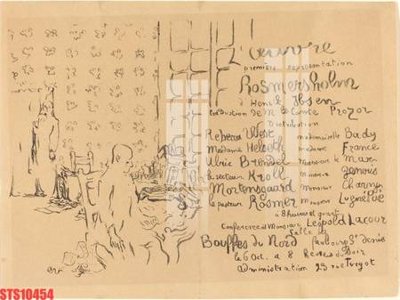 L'œuvre
première représentation
Rosmersholm
d'Henrik Ibsen
traduction de M. le Comte Prozor
Distribution
Rebecca West mademoiselle Bady
Madame Helseth Madame France
Ulric Brendel Monsieur
le recteur Kroll
Mortensgaard Monsieur Charny
le pasteur Rosmer Monsieur Lugné Poe
à 8 heures et quart
Conférence de Monsieur Léopold Lacour
Salle des
Bouffes du Nord faubourg St Denis
le 6 Oct. à 8
administration 23 rue Turgot
STS10454